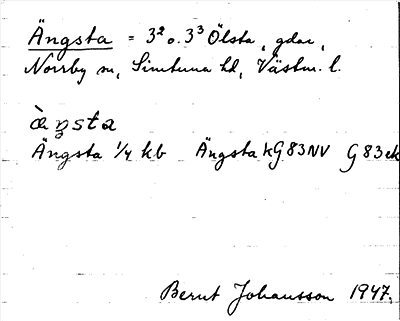 Ängsta = 3² o. 3³ Ölsta, gdar,
Norrby sn, Simtuna hd, Västm. l.
àŋsta
Ängsta 1/4 kb Ängsta kG83NV G83ek
Bernt Johansson 1947.